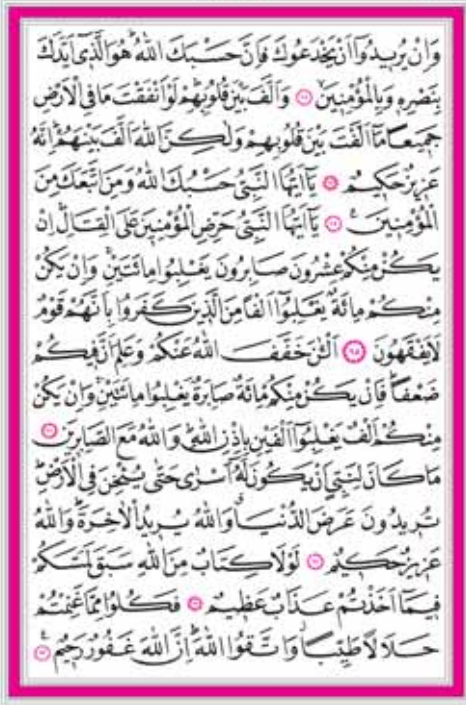 وَاِنْ يُرٖيدُٓوا اَنْ يَخْدَعُوكَ فَاِنَّ حَسْبَكَ اللّٰهُ هُوَ الَّذٖٓى اَيَّدَكَ
بِنَصْرِهٖ وَبِالْمُؤْمِنٖينَ ﴿٦٢﴾ وَاَلَّفَ بَيْنَ قُلُوبِهِمْ لَوْ اَنْفَقْتَ مَا فِى الْاَرْضِ
جَمٖيعًا مَٓا اَلَّفْتَ بَيْنَ قُلُوبِهِمْ وَلٰكِنَّ اللّٰهَ اَلَّفَ بَيْنَهُمْ اِنَّهُ
عَزٖيزٌ حَكٖيمٌ ﴿٦٣﴾ يَٓا اَيُّهَا النَّبِىُّ حَسْبُكَ اللّٰهُ وَمَنِ اتَّبَعَكَ مِنَ
الْمُؤْمِنٖينَ ﴿٦٤﴾ يَٓا اَيُّهَا النَّبِىُّ حَرِّضِ الْمُؤْمِنٖينَ عَلَى الْقِتَالِ اِنْ
يَكُنْ مِنْكُمْ عِشْرُونَ صَابِرُونَ يَغْلِبُوا مِائَتَيْنِ وَاِنْ يَكُنْ
مِنْكُمْ مِائَةٌ يَغْلِبُٓوا اَلْفًا مِنَ الَّذٖينَ كَفَرُوا بِاَنَّهُمْ قَوْمٌ
لَا يَفْقَهُونَ ﴿٦٥﴾ اَلْـٰٔنَ خَفَّفَ اللّٰهُ عَنْكُمْ وَعَلِمَ اَنَّ فٖيكُمْ
ضَعْفًا فَاِنْ يَكُنْ مِنْكُمْ مِائَةٌ صَابِرَةٌ يَغْلِبُوا مِائَتَيْنِ وَاِنْ يَكُنْ
مِنْكُمْ اَلْفٌ يَغْلِبُٓوا اَلْفَيْنِ بِاِذْنِ اللّٰهِ وَاللّٰهُ مَعَ الصَّابِرٖينَ ﴿٦٦﴾
مَا كَانَ لِنَبِىٍّ اَنْ يَكُونَ لَهُٓ اَسْرٰى حَتّٰى يُثْخِنَ فِى الْاَرْضِ
تُرٖيدُونَ عَرَضَ الدُّنْيَا وَاللّٰهُ يُرٖيدُ الْاٰخِرَةَ وَاللّٰهُ
عَزٖيزٌ حَكٖيمٌ ﴿٦٧﴾ لَوْلَا كِتَابٌ مِنَ اللّٰهِ سَبَقَ لَمَسَّكُمْ
فٖيمَٓا اَخَذْتُمْ عَذَابٌ عَظٖيمٌ ﴿٦٨﴾ فَكُلُوا مِمَّا غَنِمْتُمْ
حَلَالًا طَيِّبًا وَاتَّقُوا اللّٰهَ اِنَّ اللّٰهَ غَفُورٌ رَحٖيمٌ ﴿٦٩﴾